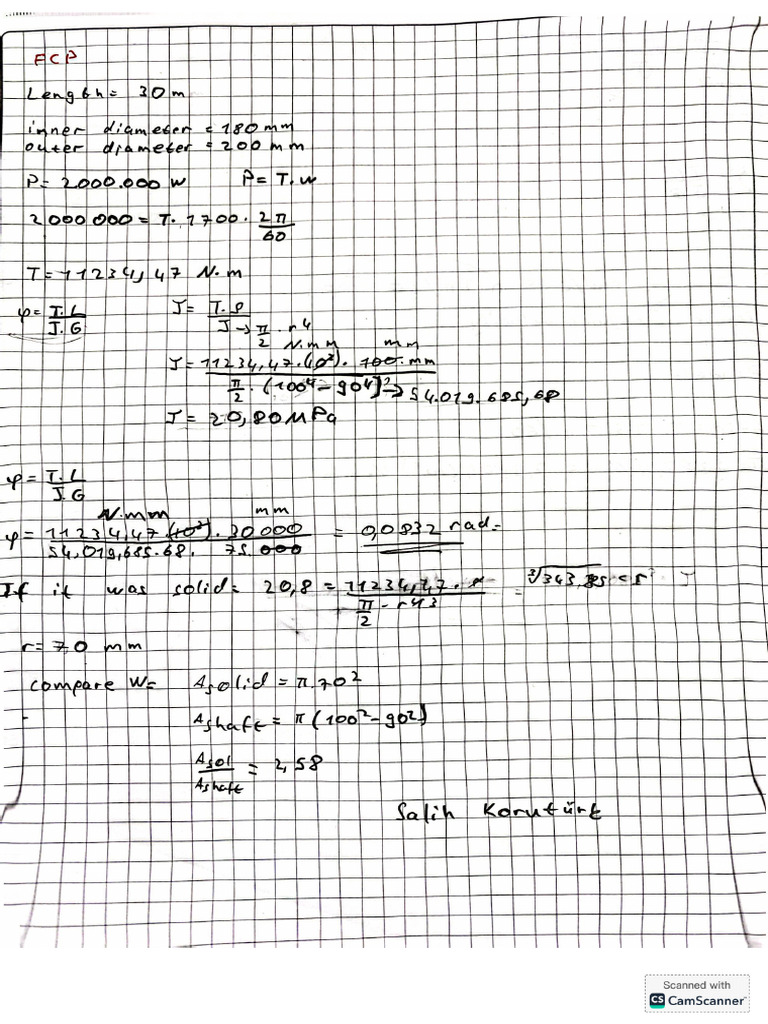 FCP
Length = 30 m
inner diameter = 180 mm
outer diameter = 200 mm
P = 2000.000 W P = T.w
2000000 = T. 1700. 2π/60
T = 11234,47 N.m
φ = T.L/J.G J = T.ρ/J → π/2 . r4
N.mm mm
J = 11234,47.(10³). 100.mm / π/2 . (100⁴ - 90⁴) → 54.019.685,68
J = 20,80 MPa
φ = T.L/J.G
N.mm mm
φ = 11234,47 (10³). 30000 / 54,019,685.68. 75.000 = 0,0832 rad =
If it was solid = 20,8 = 11234,47. r / π/2 - r43 =
r = 70 mm
compare W = Asolid = π.70²
Ashaft = π (100² - 90²)
Asol/Ashaft = 2,58
Salih Korutürk
Scanned with
CS CamScanner